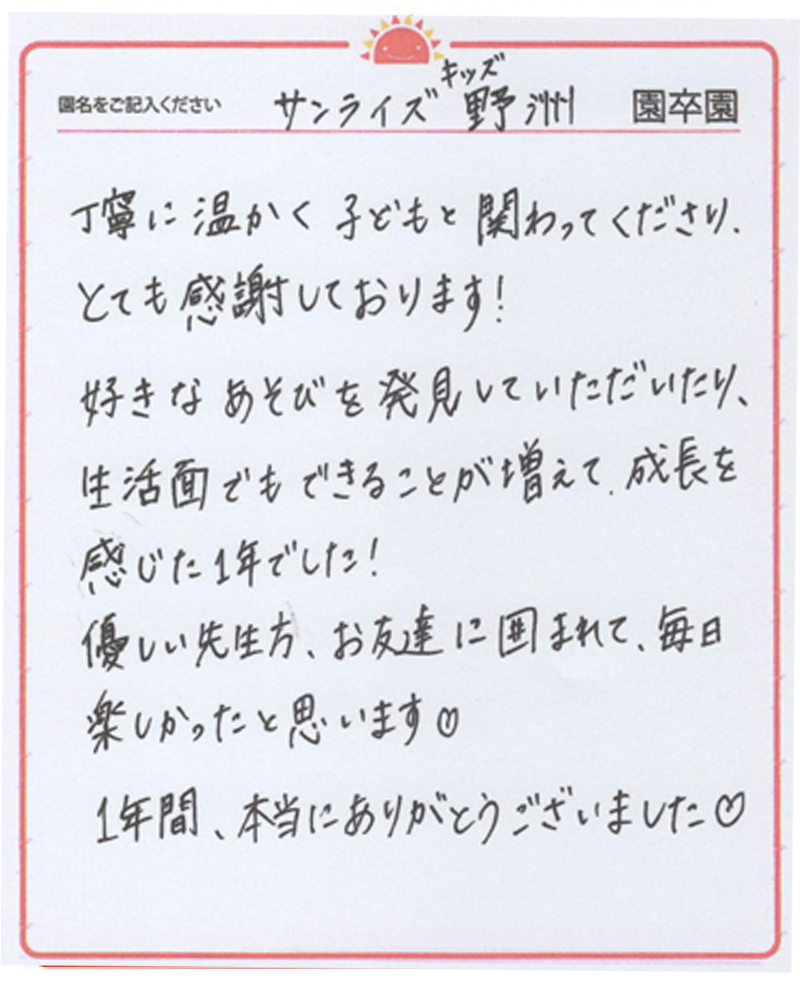 園名をご記入ください サンライズキッズ野洲 園卒園
丁寧に温かく子どもと関わってくださり、
とても感謝しております!
好きなあそびを発見していただいたり、
生活面でもできることが増えて、成長を
感じた1年でした!
優しい先生方、お友達に囲まれて、毎日
楽しかったと思います♡
1年間、本当にありがとうございました♡